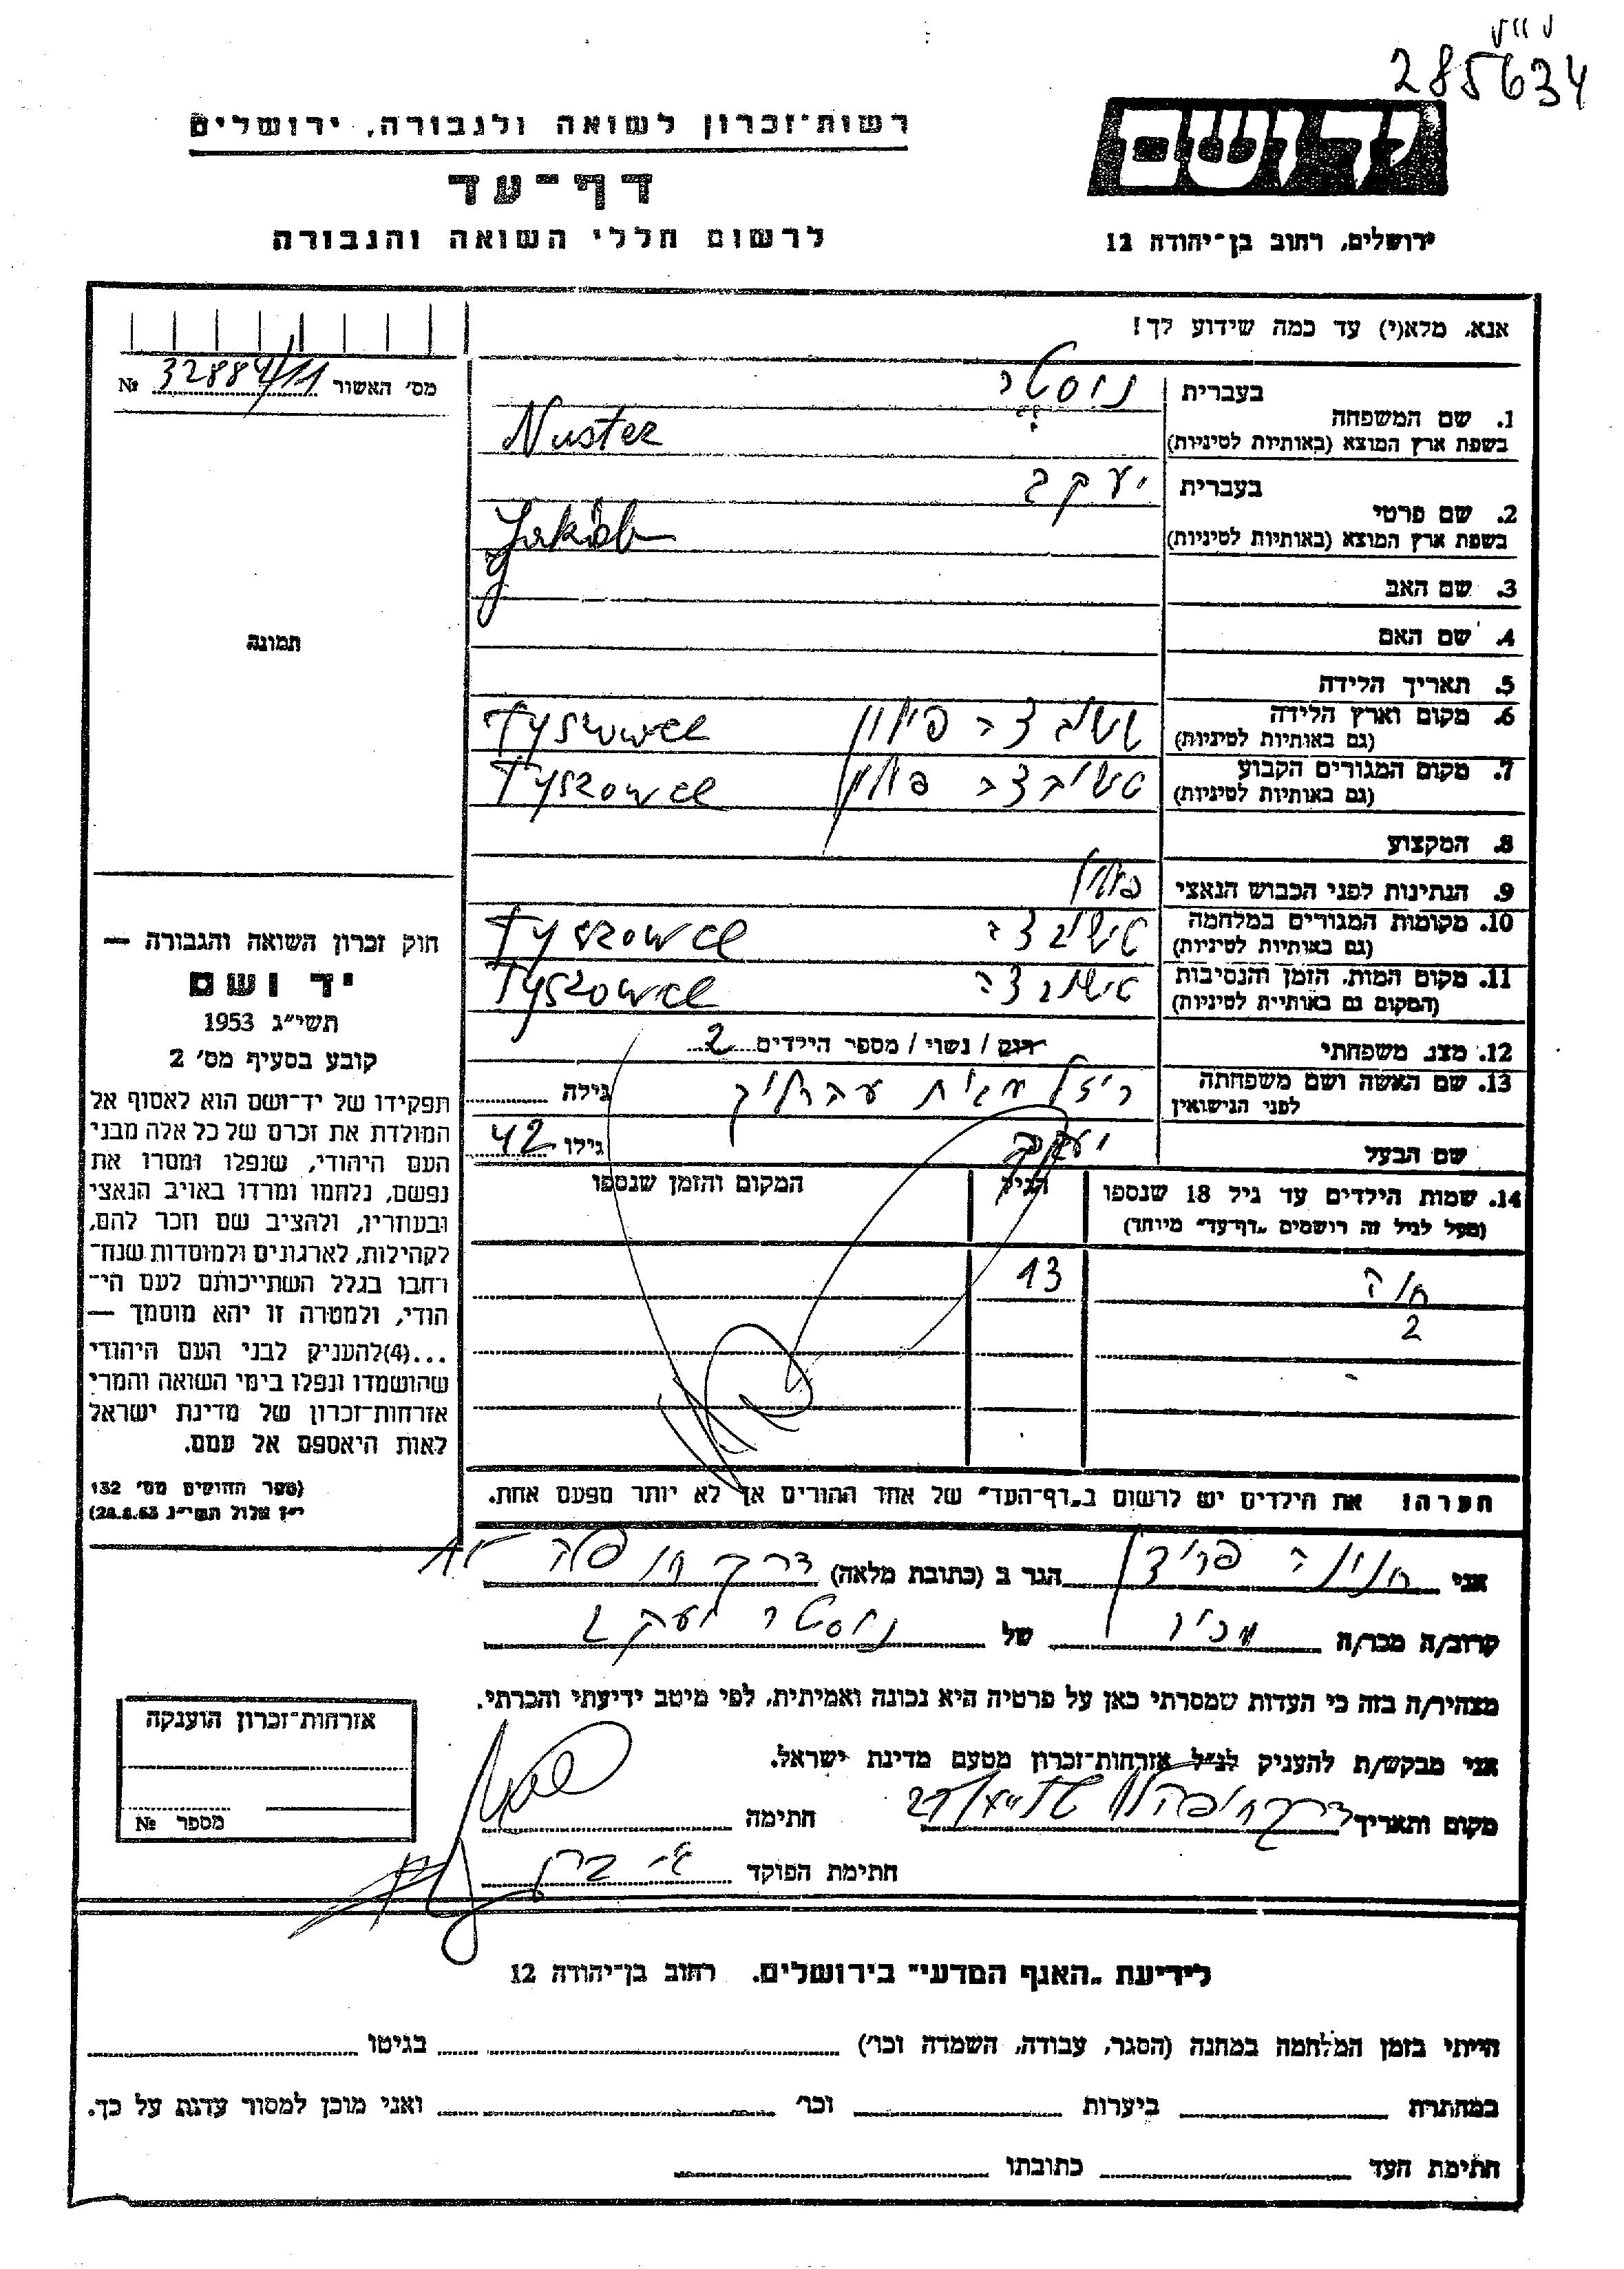 285634
רשות-זכרון לשואה ולגבורה, ירושלים
יד ושם
דף-עד
לרשום חללי השואה והגבורה
ירושלים, רחוב בן-יהודה 12
אנא, מלא(י) עד כמה שידוע לך!
מס׳ האשור № 32884/11
בעברית נוסטר
1. שם המשפחה
בשפת ארץ המוצא (באותיות לטיניות) Nuster
בעברית יעקב
2. שם פרטי
בשפת ארץ המוצא (באותיות לטיניות) Jakób
3. שם האב
4. שם האם
תמונה
5. תאריך הלידה
6. מקום וארץ הלידה
(גם באותיות לטיניות) טשיבצה פולין Tyszowce
7. מקום המגורים הקבוע
(גם באותיות לטיניות) טשיבצה פולין Tyszowce
8. המקצוע
9. הנתינות לפני הכבוש הנאצי פולין
10. מקומות המגורים במלחמה
(גם באותיות לטיניות) טשיבצה Tyszowce
11. מקום המות, הזמן והנסיבות
(המקום גם באותיות לטיניות) טשיבצה Tyszowce
12. מצב משפחתי רוק / נשוי / מספר הילדים 2
13. שם האשה ושם משפחתה
לפני הנישואין ריזל גילה
שם הבעל יעקב גילו 42
14. שמות הילדים עד גיל 18 שנספו הגיל המקום והזמן שנספו
(מעל לגיל זה רושמים „דף-עד” מיוחד)
חוה 13
2
הערה: את הילדים יש לרשום ב„דף-העד” של אחד ההורים אך לא יותר מפעם אחת.
חוק זכרון השואה והגבורה —
יד ושם
תשי״ג 1953
קובע בסעיף מס׳ 2
תפקידו של יד-ושם הוא לאסוף אל
המולדת את זכרם של כל אלה מבני
העם היהודי, שנפלו ומסרו את
נפשם, נלחמו ומרדו באויב הנאצי
ובעוזריו, ולהציב שם וזכר להם,
לקהילות, לארגונים ולמוסדות שנח־
רחבו בגלל השתייכותם לעם הי־
הודי, ולמטרה זו יהא מוסמך —
...(4)להעניק לבני העם היהודי
שהושמדו ונפלו בימי השואה והמרי
אזרחות-זכרון של מדינת ישראל
לאות היאספם אל עמם.
(ספר החוקים מס׳ 132
י״ז אלול תשי״ג 28.8.53)
אני הגר ב (כתובת מלאה)
קרוב/ה מכר/ה של נוסטר יעקב
מצהיר/ה בזה כי העדות שמסרתי כאן על פרטיה היא נכונה ואמיתית, לפי מיטב ידיעתי והכרתי.
אני מבקש/ת להעניק לנ״ל אזרחות-זכרון מטעם מדינת ישראל.
מקום ותאריך חתימה
חתימת הפוקד
אזרחות-זכרון הוענקה
מספר №
לידיעת „האגף המדעי” בירושלים. רחוב בן-יהודה 12
הייתי בזמן המלחמה במחנה (הסגר, עבודה, השמדה וכו׳) בגיטו
במחתרת ביערות וכו׳ ואני מוכן למסור עדות על כך.
חתימת העד כתובתו